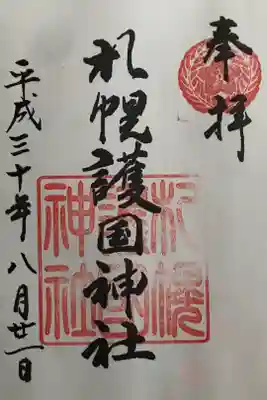 奉拝
札幌護国神社
平成三十年八月廿一日
札幌
護国
神社